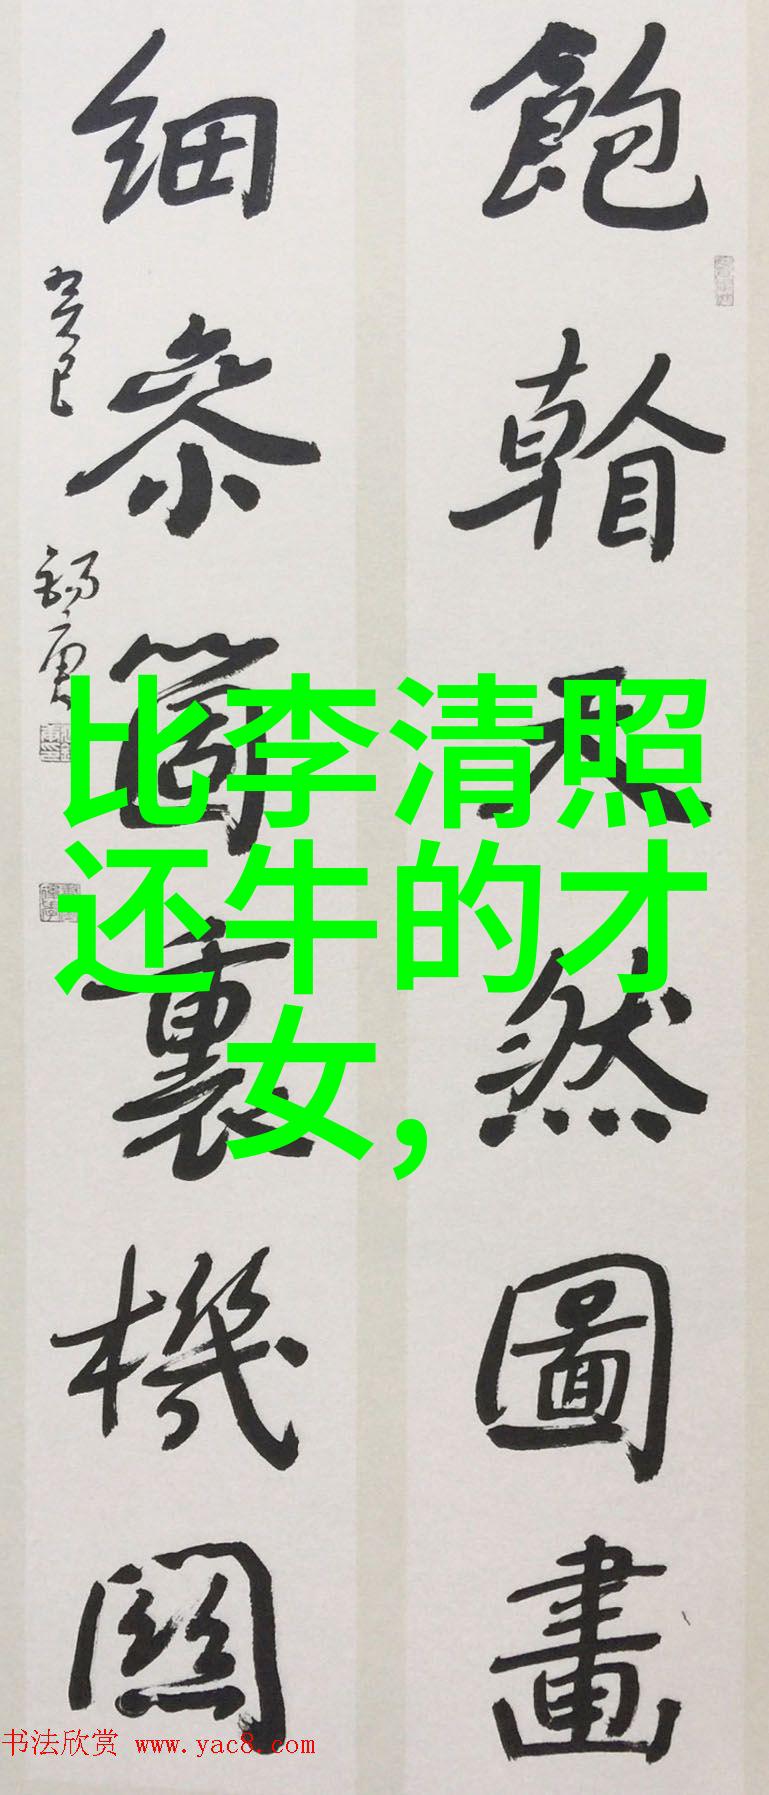 飽看天然圖畫
細參箇裏機關
癸巳
錫庚
比李清照
还牛的才
女，
书法欣赏 www.yac8.com